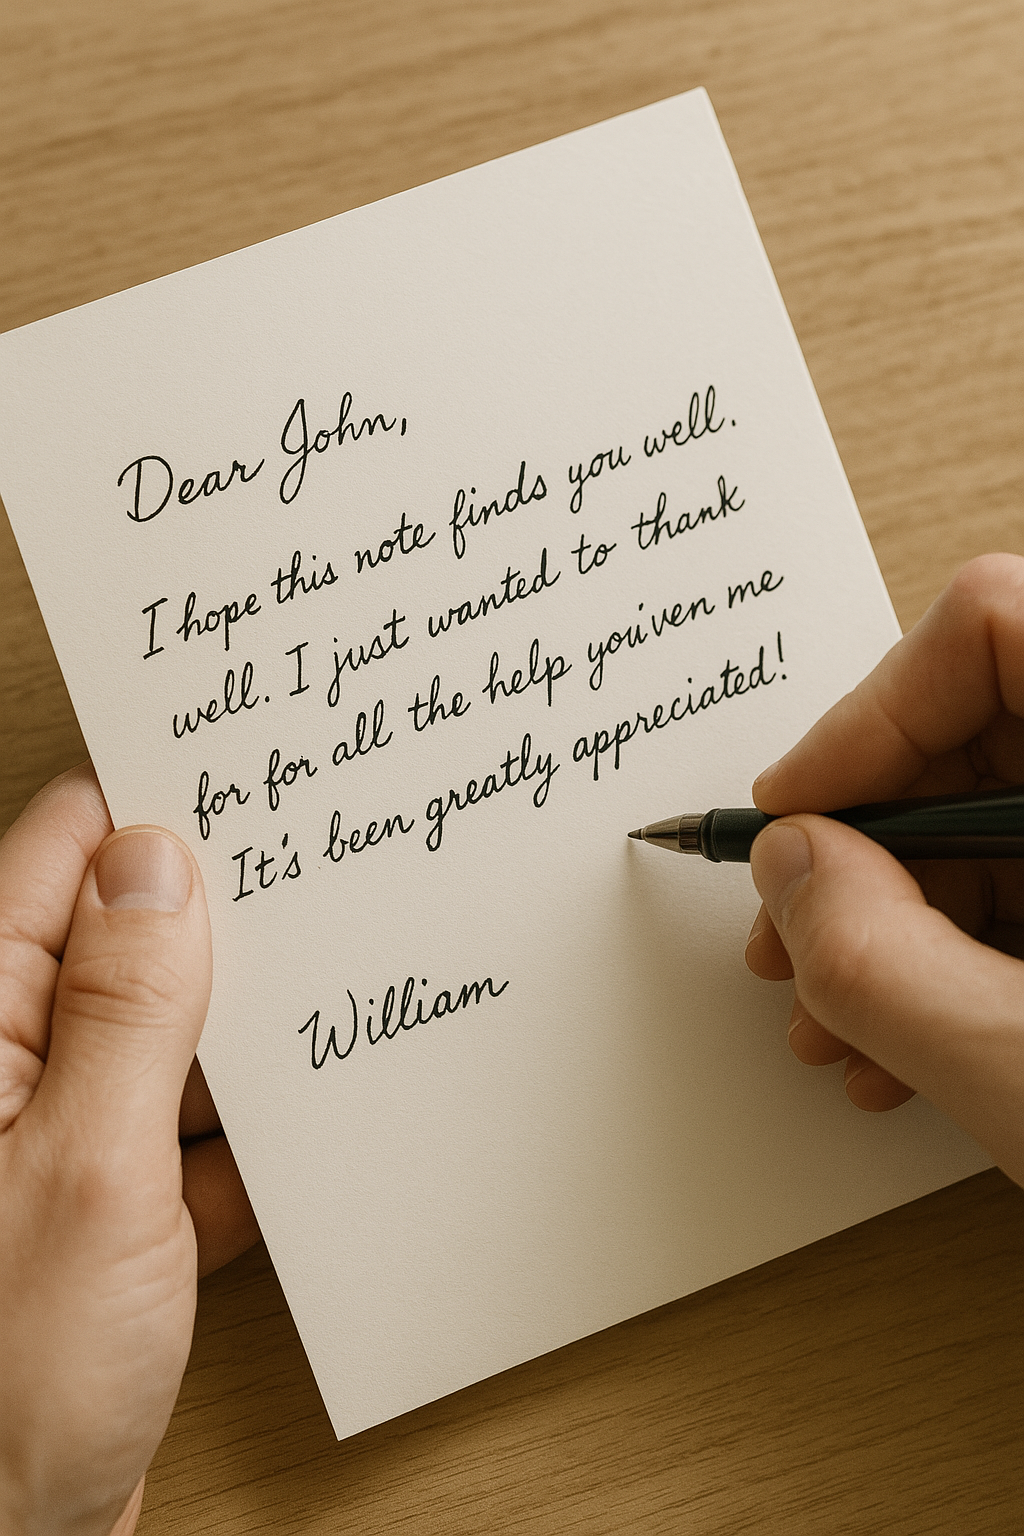 Dear John,
I hope this note finds you well.
well. I just wanted to thank
for for all the help you'iven me
It's been greatly appreciated!
William